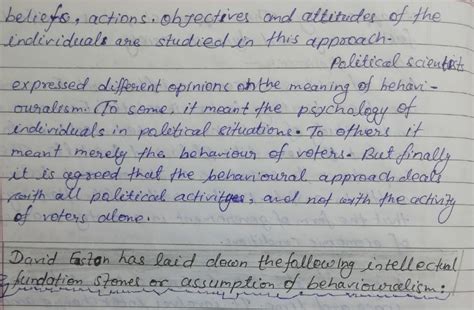 beliefs, actions, objectives and attitudes of the
individuals are studied in this approach.
Political scientist
expressed different opinions on the meaning of behavi-
ouralism. To some, it meant the psychology of
individuals in political situations. To others it
meant merely the behaviour of voters. But finally
it is agreed that the behavioural approach deals
with all political activityes, and not with the activity
of voters alone.
David Easton has laid down the following intellectual
fundation stones or assumption of behaviouralism: